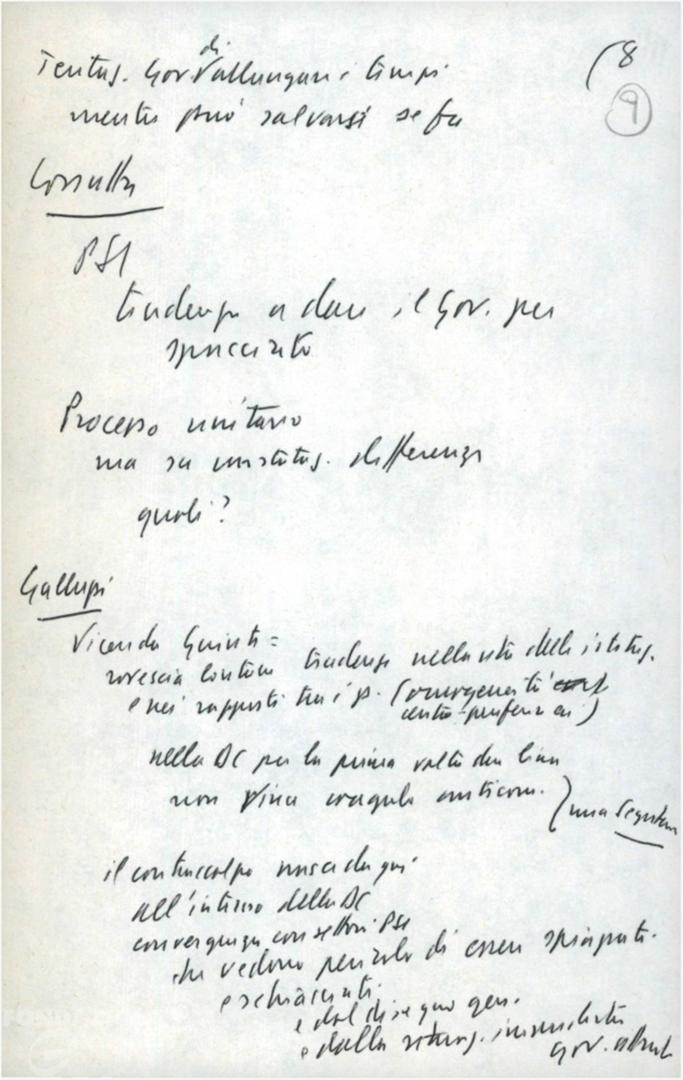 (8
9
Tentaz. Gov. di allungare i tempi
mentre può salvarsi se fa
Cossutta
PSI
tendenza a dare il Gov. per
spacciato
Processo unitario
ma su differenze
quali?
Galluppi
Vicenda Giunte =
rovescia lontana tendenza nella vita delle istituz.
e nei rapporti tra i p. (omogeneità
centro-periferia)
nella DC per la prima volta due linee
non vince anticom. } una Segreteria
il contraccolpo nasce da qui
all'interno della DC
convergenza con settori PSI
che vedono pericolo di essere
e schiacciati.
e dal disegno gen.
e dalla situaz. immediata
Gov.